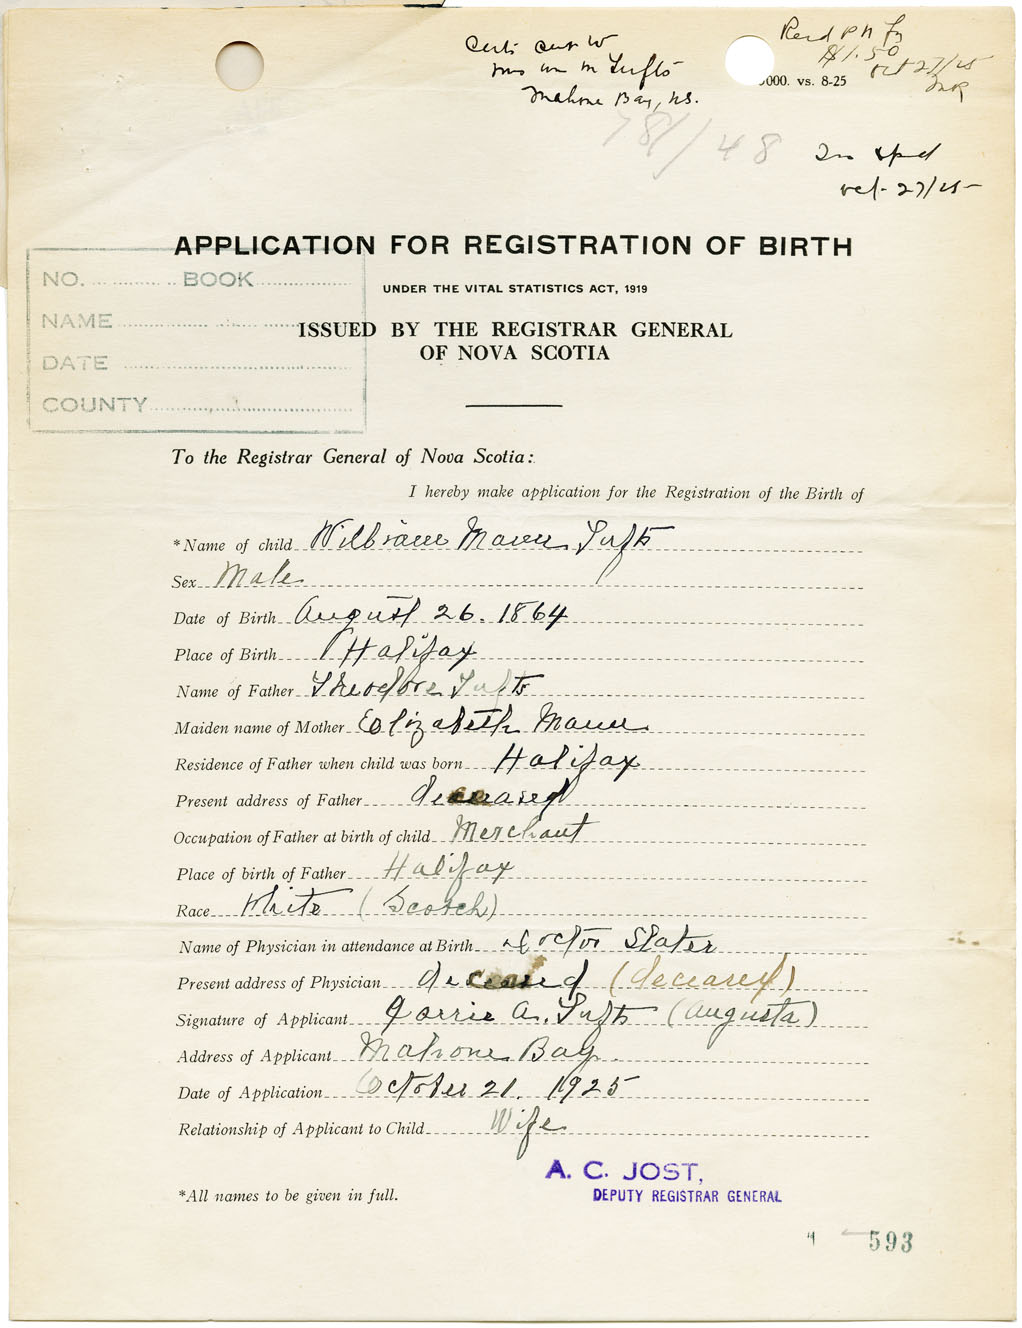 Mrs Wm M Tufts
Mahone Bay, N.S.
Recd P N
$1.50
Oct 27/25
5000. vs. 8-25
781/148
Oct. 27/25
APPLICATION FOR REGISTRATION OF BIRTH
UNDER THE VITAL STATISTICS ACT, 1919
ISSUED BY THE REGISTRAR GENERAL
OF NOVA SCOTIA
NO. BOOK
NAME
DATE
COUNTY
To the Registrar General of Nova Scotia:
I hereby make application for the Registration of the Birth of
*Name of child William Mann Tufts
Sex Male
Date of Birth August 26. 1864
Place of Birth Halifax
Name of Father Theodore Tufts
Maiden name of Mother Elizabeth Mann
Residence of Father when child was born Halifax
Present address of Father deceased
Occupation of Father at birth of child Merchant
Place of birth of Father Halifax
Race White (Scotch)
Name of Physician in attendance at Birth Doctor Slater
Present address of Physician deceased (deceased)
Signature of Applicant Carrie A. Tufts (Augusta)
Address of Applicant Mahone Bay.
Date of Application October 21. 1925
Relationship of Applicant to Child Wife
A. C. JOST,
DEPUTY REGISTRAR GENERAL
*All names to be given in full.
593